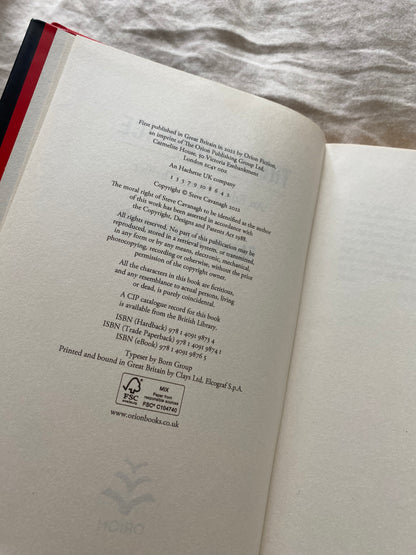 First published in Great Britain in 2022 by Orion Fiction,
an imprint of The Orion Publishing Group Ltd,
Carmelite House, 50 Victoria Embankment
London EC4Y 0DZ
An Hachette UK company
1 3 5 7 9 10 8 6 4 2
Copyright © Steve Cavanagh 2022
The moral right of Steve Cavanagh to be identified as the author
of this work has been asserted in accordance with
the Copyright, Designs and Patents Act 1988.
All rights reserved. No part of this publication may be
reproduced, stored in a retrieval system, or transmitted
in any form or by any means, electronic, mechanical,
photocopying, recording or otherwise, without the prior
permission of the copyright owner.
All the characters in this book are fictitious,
and any resemblance to actual persons, living
or dead, is purely coincidental.
A CIP catalogue record for this book
is available from the British Library.
ISBN (Hardback) 978 1 4091 9873 4
ISBN (Trade Paperback) 978 1 4091 9874 1
ISBN (eBook) 978 1 4091 9876 5
Typeset by Born Group
Printed and bound in Great Britain by Clays Ltd, Elcograf S.p.A.
FSC
www.fsc.org
MIX
Paper from
responsible sources
FSC® C104740
www.orionbooks.co.uk
ORION